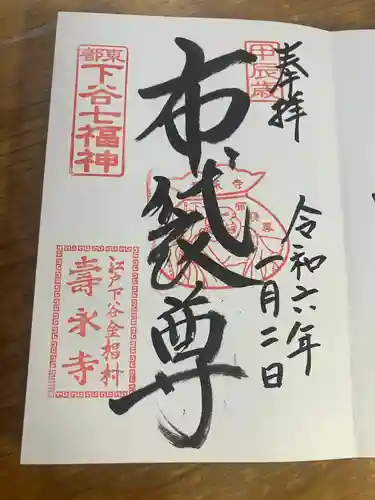 奉拝
甲辰歳
布袋尊
令和六年
一月二日
東都
下谷七福神
江戸下谷金椙村
壽永寺